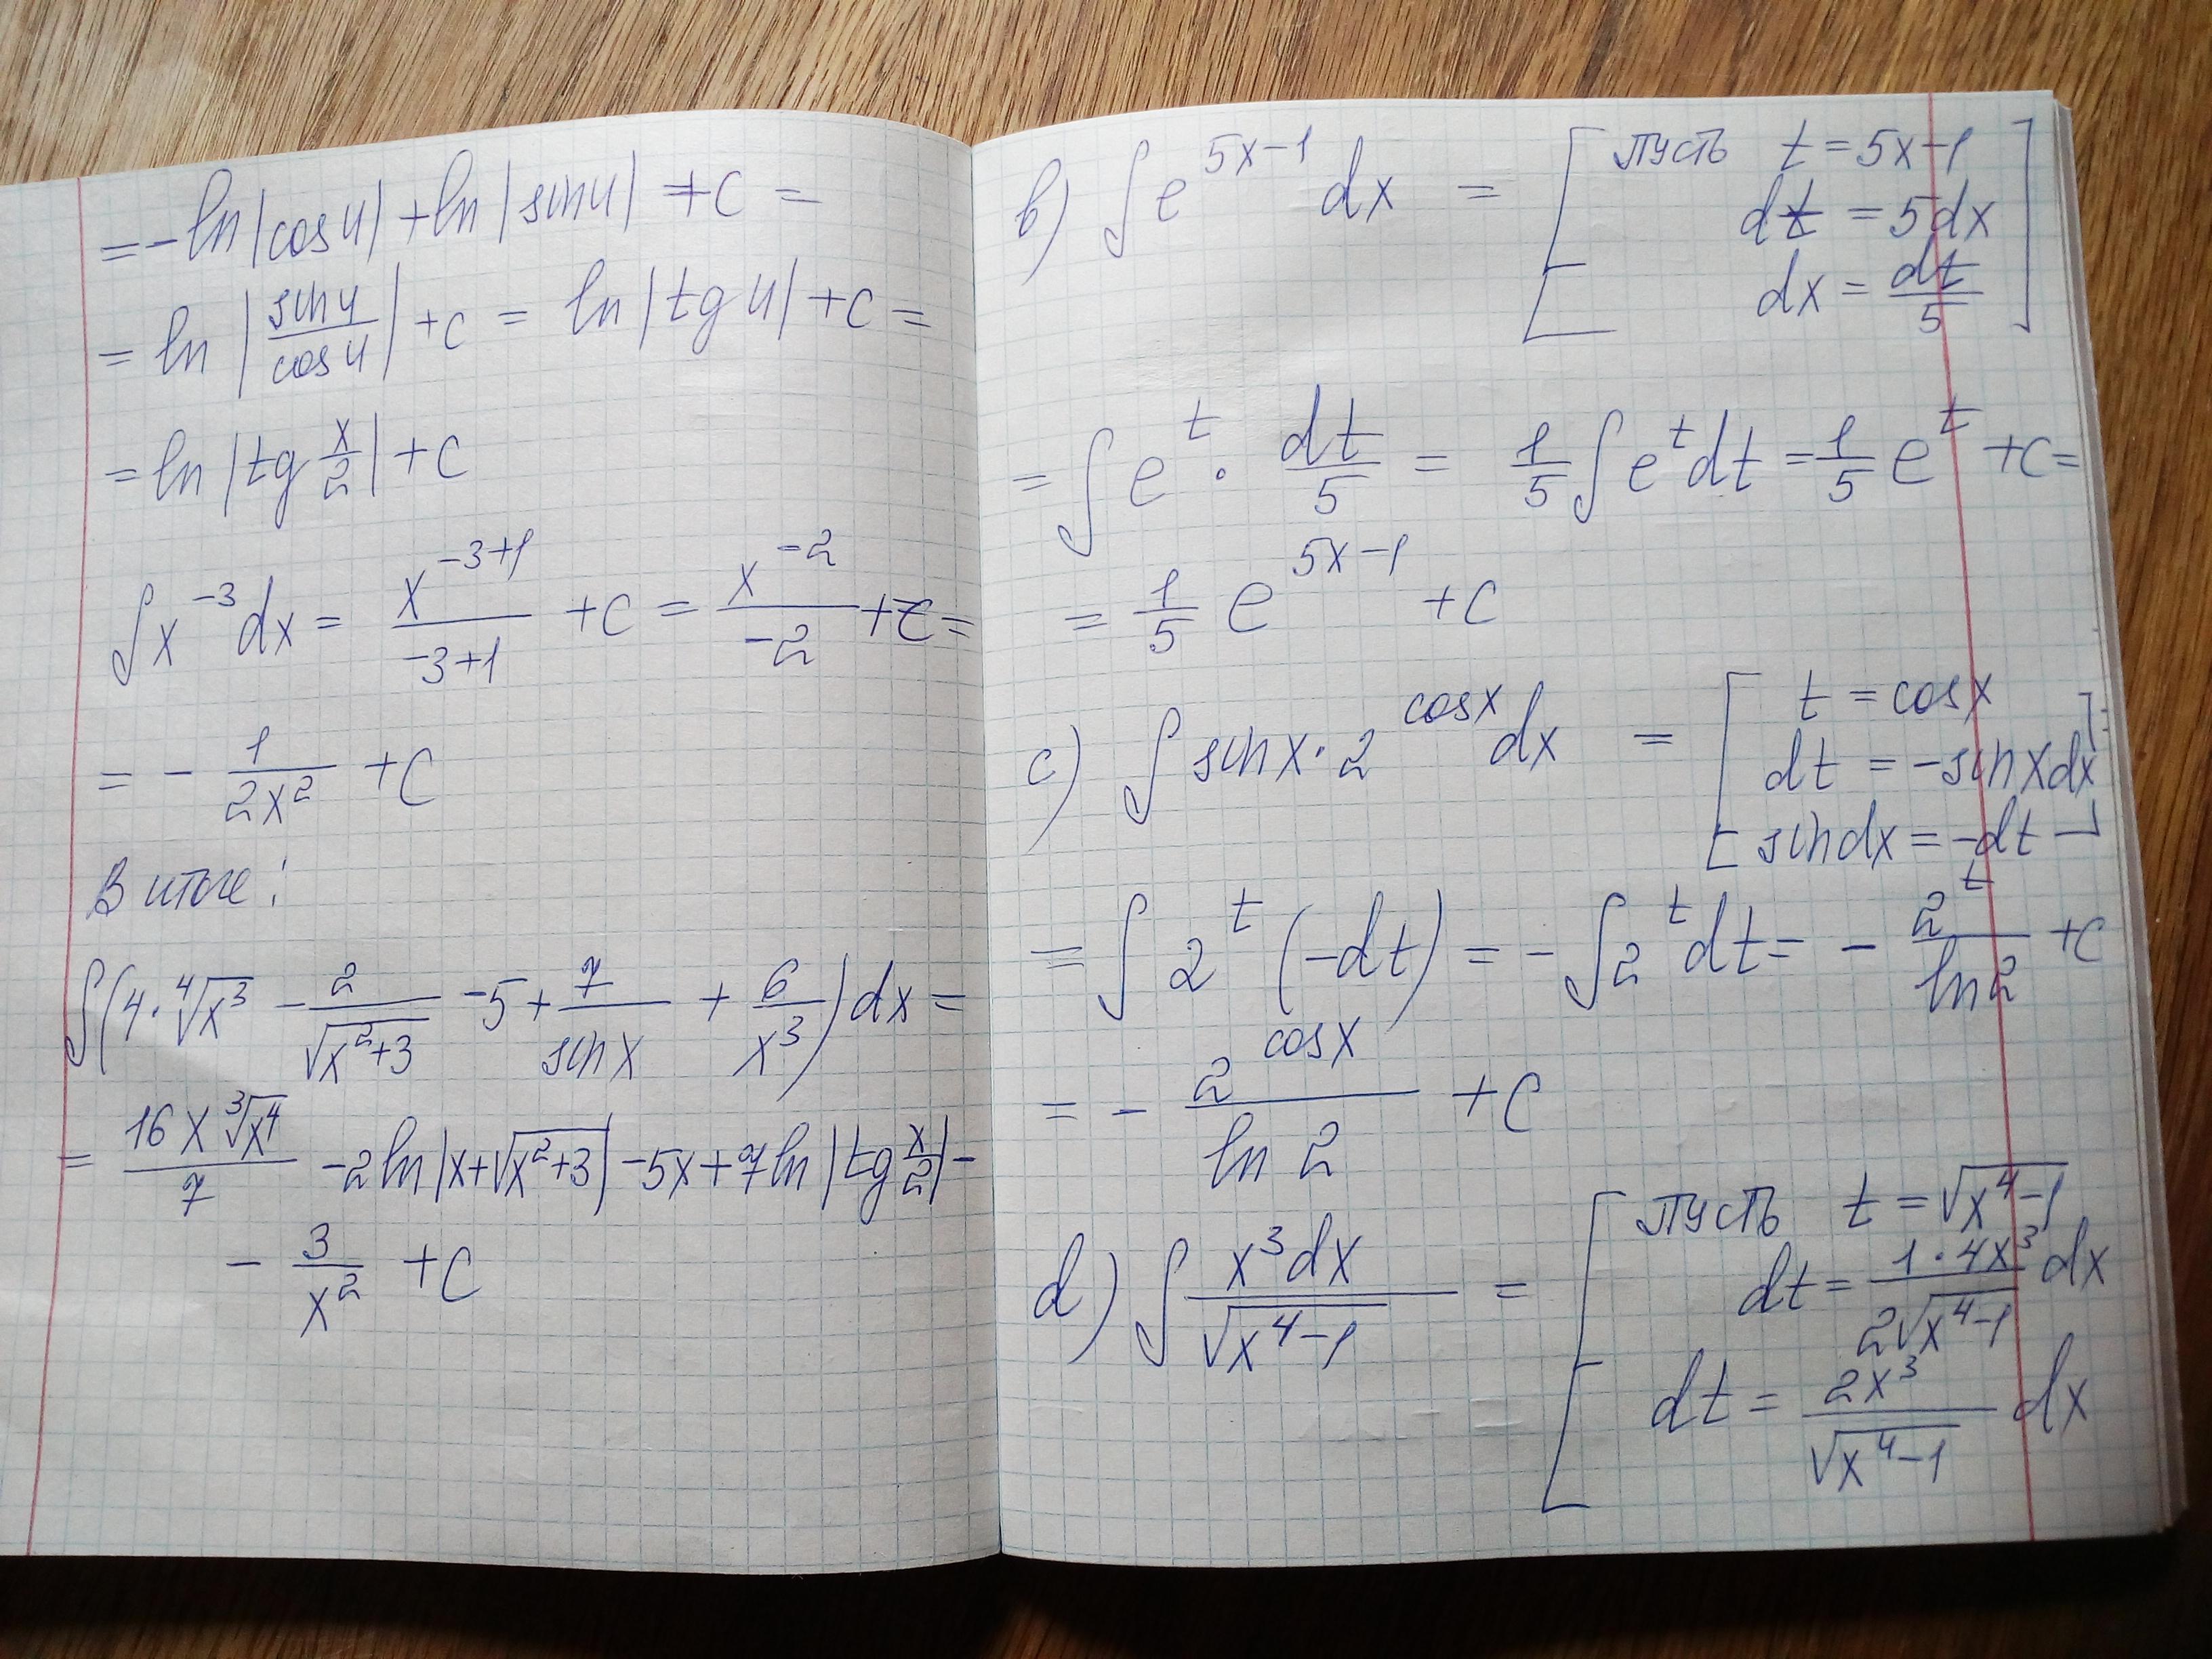 = -ln|cos u| + ln|sin u| + c =
= ln|sin u / cos u| + c = ln|tg u| + c =
= ln|tg x/2| + c
∫x⁻³dx = x^(-3+1) / (-3+1) + c = x^(-2) / (-2) + c =
= - 1/(2x²) + c
В итоге:
∫(4·⁴√x³ - 2/√(x²+3) - 5 + 7/sin x + 6/x³)dx =
= 16x ³√x⁴ / 7 - 2ln|x+√(x²+3)| - 5x + 7ln|tg x/2| -
- 3/x² + c
b) ∫e^(5x-1) dx = [пусть t = 5x-1
dt = 5dx
dx = dt/5]
= ∫e^t · dt/5 = 1/5 ∫e^t dt = 1/5 e^t + c =
= 1/5 e^(5x-1) + c
c) ∫sin x · 2^(cos x) dx = [t = cos x
dt = -sin x dx
sin dx = -dt] =
= ∫2^t (-dt) = -∫2^t dt = - 2^t / ln 2 + c
= - 2^(cos x) / ln 2 + c
d) ∫ x³dx / √(x⁴-1) = [пусть t = √(x⁴-1)
dt = 1·4x³ / 2√(x⁴-1) dx
dt = 2x³ / √(x⁴-1) dx